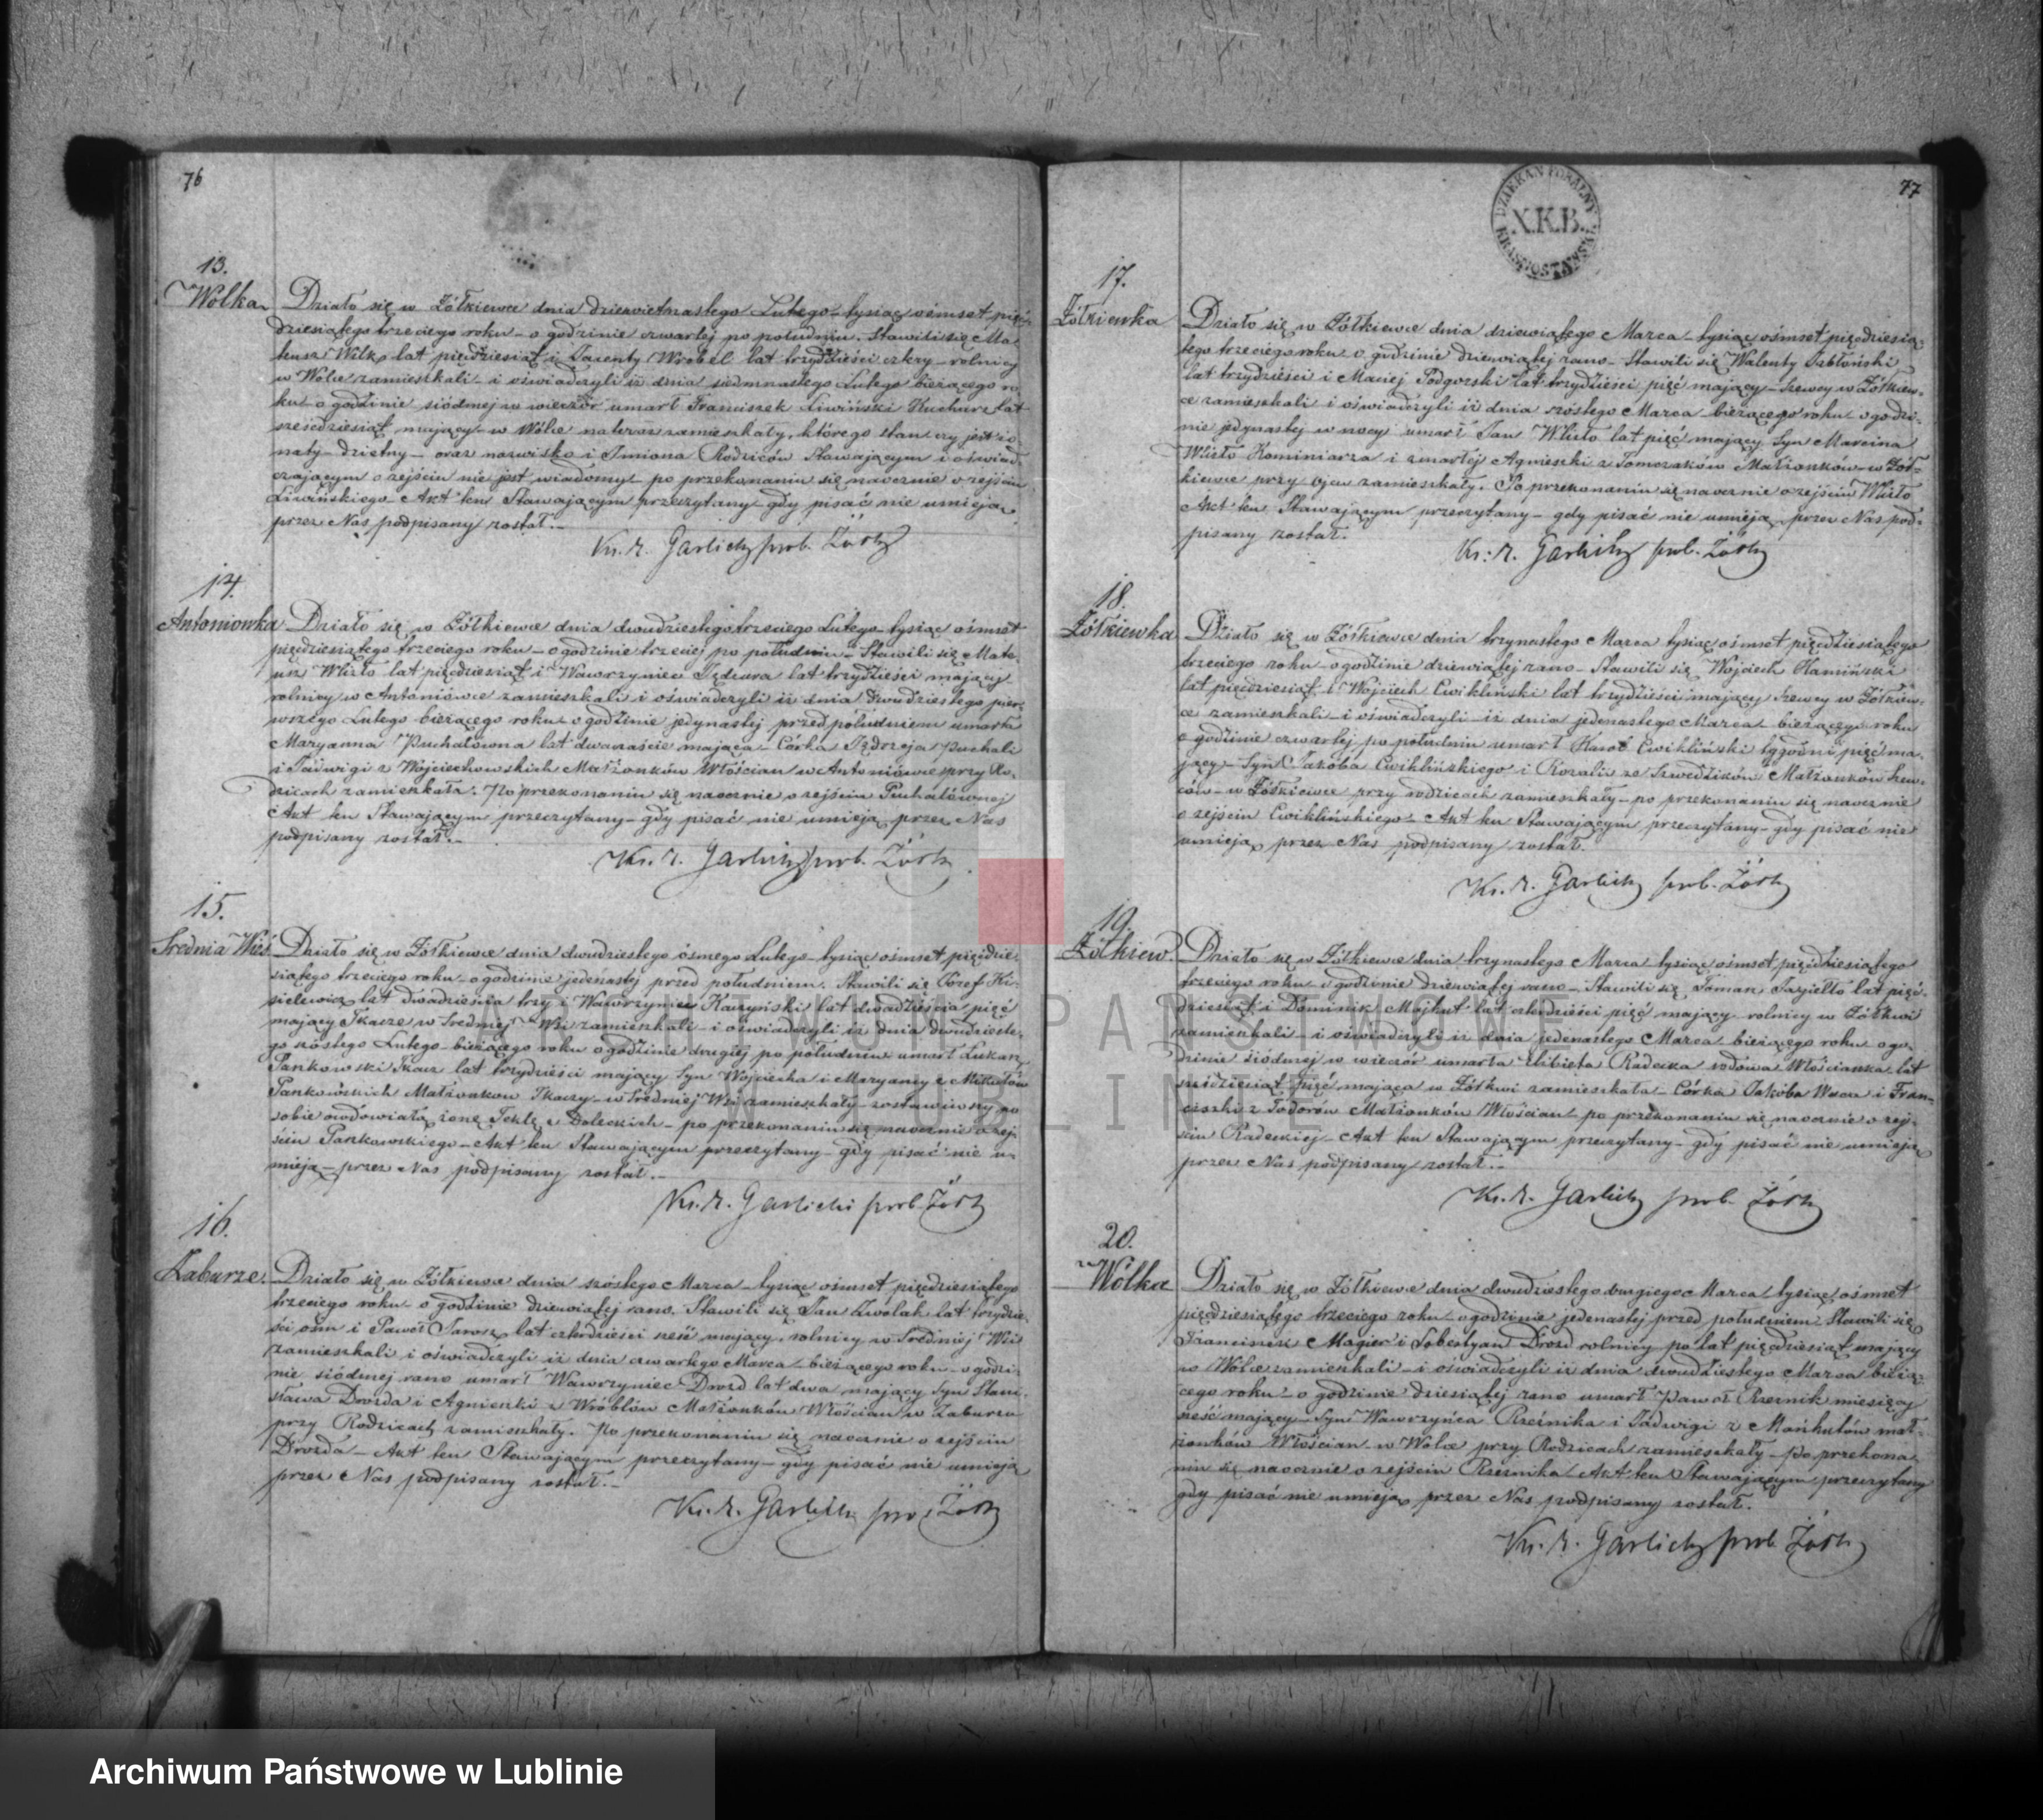 76
13.
Wolka
Działo się w Żółkiewce dnia dziewiętnastego Lutego tysiąc ośmset pięć-
dziesiątego trzeciego roku o godzinie czwartej po południu. Stawili się Ma-
teusz Wilk lat pięćdziesiąt i Walenty Wrobel lat trzydzieści cztery rolnicy
w Wólce zamieszkali i oświadczyli iż dnia siedmnastego Lutego bieżącego ro-
ku o godzinie siódmej w wieczór umarł Franciszek Liwiński Kucharz lat
sześćdziesiąt mający w Wólce zamieszkały, którego stan czy jest żo-
naty dzietny oraz nazwisko i Imiona Rodziców Stawającym i oświad-
czającym o zejściu nie jest wiadomy po przekonaniu się naocznie o zejściu
Liwińskiego Akt ten Stawającym przeczytany gdy pisać nie umieją
przez Nas podpisany został.
Ks. R. Garlicki prob. Żółk
14.
Antoniowka
Działo się w Żółkiewce dnia dwudziestego trzeciego Lutego tysiąc ośmset
pięćdziesiątego trzeciego roku o godzinie trzeciej po południu Stawili się Mate-
usz Wlizło lat pięćdziesiąt i Wawrzyniec lat trzydzieści mający
rolnicy w Antoniówce zamieszkali i oświadczyli iż dnia dwudziestego pier-
wszego Lutego bieżącego roku o godzinie jedynastej przed południem umarła
Maryanna Puchalówna lat dwanaście mająca Córka Jędrzeja Puchali
i Jadwigi z Wojciechowskich Małżonków Włościan w Antoniówce przy Ro-
dzicach zamieszkała. Po przekonaniu się naocznie o zejściu Puchalównej
Akt ten Stawającym przeczytany gdy pisać nie umieją przez Nas
podpisany został.
Ks. R. Garlicki prob. Żółk
15.
Srednia Wieś
Działo się w Żółkiewce dnia dwudziestego ósmego Lutego tysiąc ośmset pięćdzie-
siątego trzeciego roku o godzinie jedenastej przed południem. Stawili się Józef Ki-
sielewicz lat dwadzieścia trzy i Wawrzyniec Kaczyński lat dwadzieścia pięć
mający Tkacze w Średniej Wsi zamieszkali i oświadczyli iż dnia dwudzieste-
go szóstego Lutego bieżącego roku o godzinie drugiej po południu umarł Łukasz
Pankowski Tkacz lat trzydzieści mający Syn Wojciecha i Maryanny z
Pankowskich Małżonków Tkaczy w Średniej Wsi zamieszkały zostawiwszy po
sobie owdowiałą żonę Teklę z Doleckich po przekonaniu się naocznie o zej-
ściu Pankowskiego Akt ten Stawającym przeczytany gdy pisać nie u-
mieją przez Nas podpisany został.
Ks. R. Garlicki prob. Żółk
16.
Zaburze.
Działo się w Żółkiewce dnia szóstego Marca tysiąc ośmset pięćdziesiątego
trzeciego roku o godzinie dziewiątej rano. Stawili się Jan Zwolak lat trzydzie-
ści ośm i Paweł Jarosz lat czterdzieści sześć mający, rolnicy w Średniej Wsi
zamieszkali i oświadczyli iż dnia czwartego Marca bieżącego roku o godzi-
nie siódmej rano umarł Wawrzyniec Drozd lat dwa mający Syn Stani-
sława Drozda i Agnieszki z Wróblów Małżonków Włościan w Zaburzu
przy Rodzicach zamieszkały. Po przekonaniu się naocznie o zejściu
Drozda Akt ten Stawającym przeczytany gdy pisać nie umieją
przez Nas podpisany został.
Ks. R. Garlicki prob. Żółk
77
DZIEKAN FORALNY KRASNOSTAWSKI
X.K.B.
17.
Żółkiewka
Działo się w Żółkiewce dnia dziewiątego Marca tysiąc ośmset pięćdziesią-
tego trzeciego roku o godzinie dziewiątej rano Stawili się Walenty Jabłoński
lat trzydzieści i Maciej Podgorski lat trzydzieści pięć mający Szewcy w Żółkiew-
ce zamieszkali i oświadczyli iż dnia szóstego Marca bieżącego roku o godzi-
nie jedynastej w nocy umarł Jan Wlizło lat pięć mający Syn Marcina
Wlizło Kominiarza i zmarłej Agnieszki z Tomczaków Małżonków w Żół-
kiewce przy ojcu zamieszkały. Po przekonaniu się naocznie o zejściu Wlizło
Akt ten Stawającym przeczytany gdy pisać nie umieją przez Nas pod-
pisany został.
Ks. R. Garlicki prob. Żółk
18.
Żółkiewka
Działo się w Żółkiewce dnia trzynastego Marca tysiąc ośmset pięćdziesiątego
trzeciego roku o godzinie dziewiątej rano Stawili się Wojciech Kamiński
lat pięćdziesiąt i Wojciech Cwikliński lat trzydzieści mający Szewcy w Żółkiew-
ce zamieszkali i oświadczyli iż dnia jedenastego Marca bieżącego roku
o godzinie czwartej po południu umarł Karol Cwikliński tygodni pięć ma-
jący Syn Jakóba Cwiklińskiego i Rozalii ze Szwedzików Małżonków Szew-
ców w Żółkiewce przy rodzicach zamieszkały po przekonaniu się naocznie
o zejściu Cwiklińskiego Akt ten Stawającym przeczytany gdy pisać nie
umieją przez Nas podpisany został.
Ks. R. Garlicki prob. Żółk
19.
Żółkiew.
Działo się w Żółkiewce dnia trzynastego Marca tysiąc ośmset pięćdziesiątego
trzeciego roku o godzinie dziewiątej rano Stawili się Toman Jagiełło lat pięć-
dziesiąt i Dominik Majkut lat czterdzieści pięć mający rolnicy w Żółkwi
zamieszkali i oświadczyli iż dnia jedenastego Marca bieżącego roku o go-
dzinie siódmej w wieczór umarła Elżbieta Radecka wdowa Włościanka lat
sześćdziesiąt pięć mająca w Żółkwi zamieszkała Córka Jakóba i Fran-
ciszki z Fedorów Małżonków Włościan po przekonaniu się naocznie o zej-
ściu Radeckiej Akt ten Stawającym przeczytany gdy pisać nie umieją
przez Nas podpisany został.
Ks. R. Garlicki prob. Żółk
20.
Wólka
Działo się w Żółkiewce dnia dwudziestego drugiego Marca tysiąc ośmset
pięćdziesiątego trzeciego roku o godzinie jedenastej przed południem Stawili się
Franciszek Magier i Sobestyan Drozd rolnicy po lat pięćdziesiąt mający
w Wólce zamieszkali i oświadczyli iż dnia dwudziestego Marca bieżą-
cego roku o godzinie dziesiątej rano umarł Paweł Rzeznik miesięcy
sześć mający Syn Wawrzyńca Rzeźnika i Jadwigi z Mańkutów mał-
żonków Włościan w Wólce przy Rodzicach zamieszkały po przekona-
niu się naocznie o zejściu Rzeznika Akt ten Stawającym przeczytany
gdy pisać nie umieją przez Nas podpisany został.
Ks. R. Garlicki prob. Żółk
ARCHIWUM PAŃSTWOWE
W LUBLINIE
Archiwum Państwowe w Lublinie